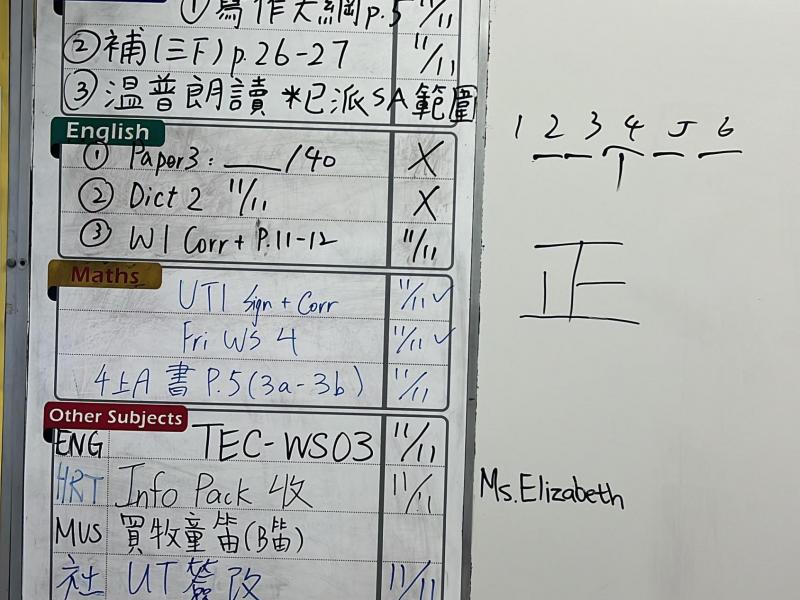 ① 寫作大綱p.5 11/11
② 補(三下)p.26-27 11/11
③ 溫普朗讀 *已派SA範圍
English
① Paper3: ___/40 X
② Dict 2 11/11 X
③ W1 Corr + P.11-12 11/11
Maths
UT1 Sign + Corr 11/11 ✓
Fri WS 4 11/11 ✓
4上A 書 P.5(3a-3b) 11/11
Other Subjects
ENG TEC-WS03 11/11
HRT Info Pack 收 11/11
MUS 買牧童笛(B笛)
社 UT簽改 11/11
1 2 3 4 5 6
正
Ms.Elizabeth